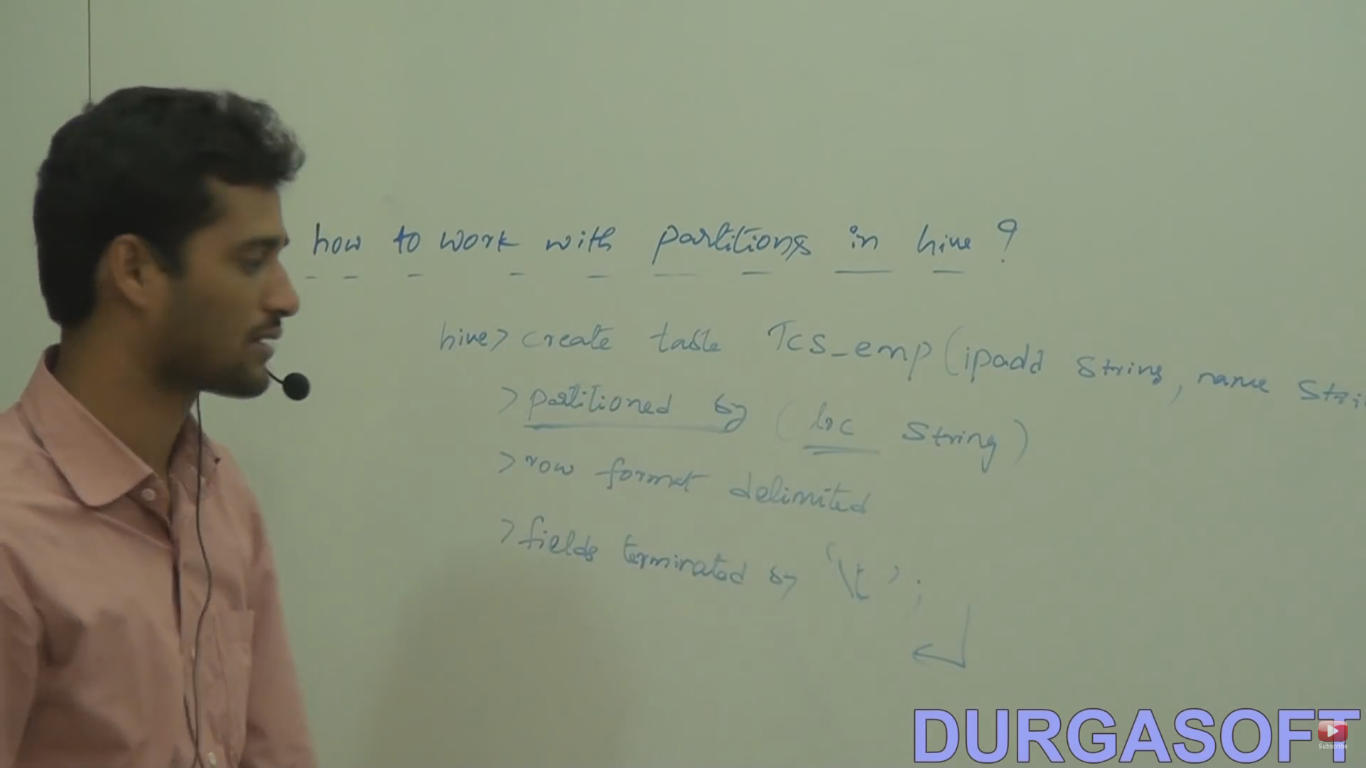 how to work with partitions in hive ?
hive> create table Tcs_emp(ipadd string, name stri
> partitioned by (loc string)
> row format delimited
> fields terminated by '\t' ;
DURGASOFT
Subscribe